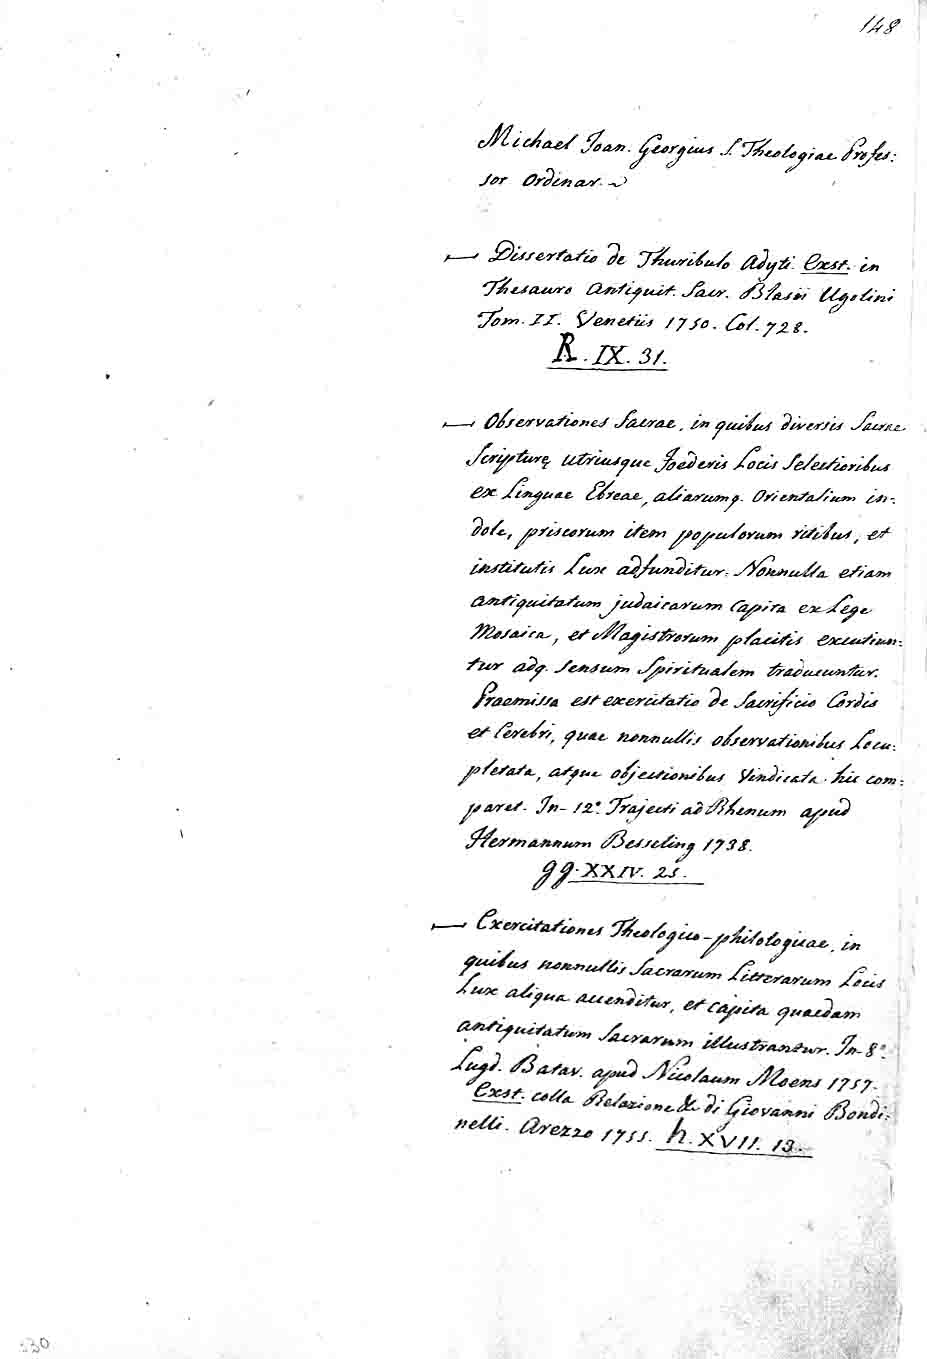 148
Michael Joan. Georgius S. Theologiae Profes:
sor Ordinar.
— Dissertatio de Thuribulo Adyti. Exst. in
Thesauro Antiquit. Sacr. Blasii Ugolini
Tom. II. Venetiis 1750. Col. 728.
R. IX. 31.
— Observationes Sacrae, in quibus diversis Sacrae
Scripturę utriusque Foederis Locis Selectioribus
ex Linguae Ebreae, aliarumq. Orientalium in:
dole, priscorum item populorum ritibus, et
institutis Lux adfunditur: Nonnulla etiam
antiquitatum judaicarum Capita ex Lege
Mosaica, et Magistrorum placitis excutiun:
tur adq. sensum Spiritualem traducuntur.
Praemissa est exercitatio de Sacrificio Cordis
et Cerebri, quae nonnullis observationibus Locu:
pletata, atque objectionibus vindicata hic com:
paret. In-12.° Trajecti ad Rhenum apud
Hermannum Besseling 1738.
gg. XXIV. 25.
— Exercitationes Theologico-philologicae, in
quibus nonnullis Sacrarum Litterarum Locis
Lux aliqua accenditur, et capita quaedam
antiquitatum Sacrarum illustrantur. In-8.°
Lugd. Batav. apud Nicolaum Moens 1757.
Exst. colla Relazione &c di Giovanni Bondi:
nelli. Arezzo 1755. h. XVII. 13.
330